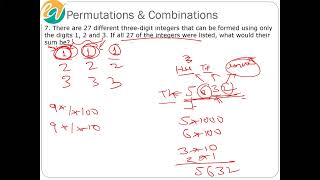 Permutations & Combinations
7. There are 27 different three-digit integers that can be formed using only
the digits 1, 2 and 3. If all 27 of the integers were listed, what would their
sum be?
1 1 1
2 2 2
3 3 3
3
The 5 6 3 2
9*1*100
9*1*10
5*1000
6*100
3*10
2*1
5632